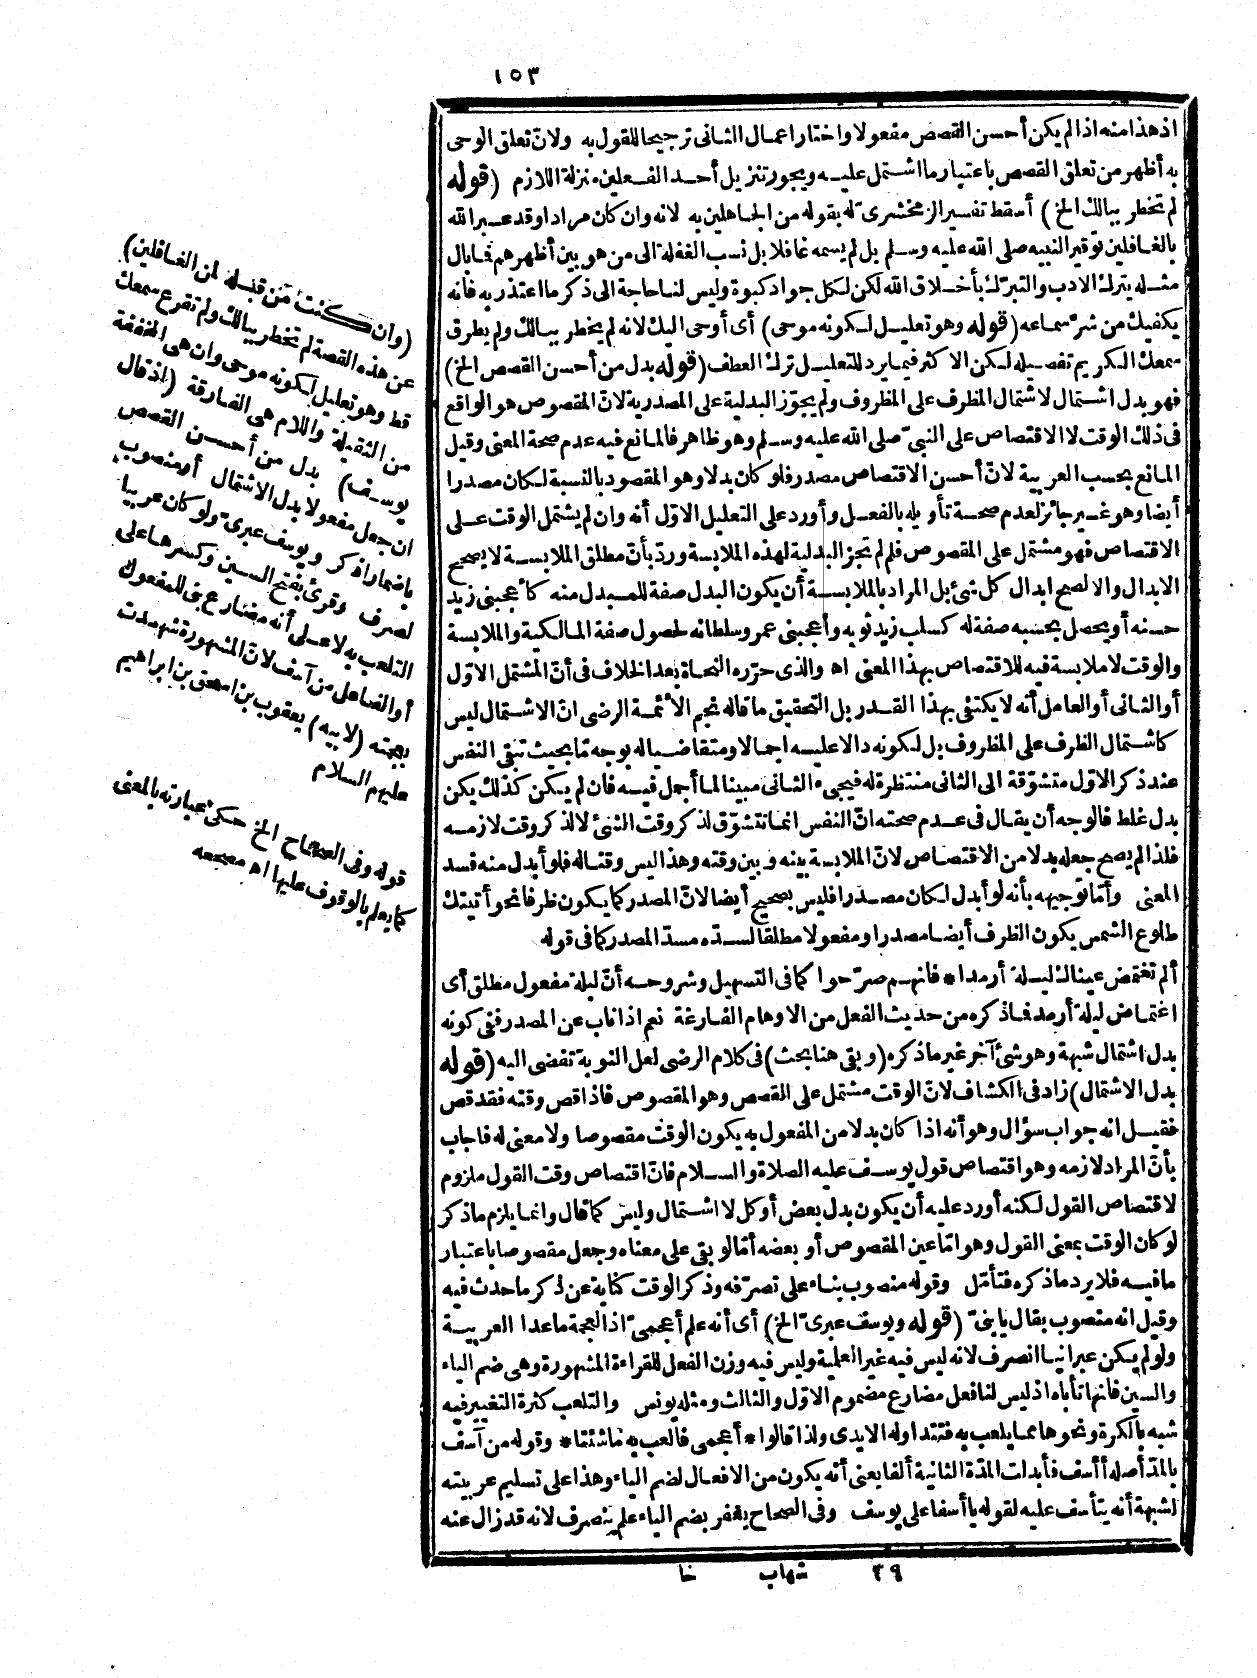 ١٥٣
اذ هذا منه اذا لم يكن أحسن القصص مفعولا واختار اعمال الثانى ترجيحا للقول به ولانّ تعلق الوحى
به أظهر من تعلق القصص باعتبار ما اشتمل عليه ويجوز تنزيل أحد الفعلين منزلة اللازم (قوله
لم تخطر ببالك الخ) أسقط تفسير الزمخشرىّ له بقوله من الجاهلين به لانه وان كان مرادا وقد عبر الله
بالغافلين توقير النبيه صلى الله عليه وسلم بل لم يسمه غافلا بل نسب الغفلة الى من هو بين أظهرهم فما بال
مثله يترك الادب والتبرّك بأخلاق الله لكن لكل جواد كبوة وليس لنا حاجة الى ذكر ما اعتذر به فانه
يكفيك من شرّ سماعه (قوله وهو تعليل لكونه موحى) أى أوحى اليك لانه لم يخطر ببالك ولم يطرق
سمعك الكريم تفصيله لكن الاكثر فيما يرد للتعليل ترك العطف (قوله بدل من أحسن القصص الخ)
فهو بدل اشتمال لاشتمال الظرف على المظروف ولم يجوّز البدلية على المصدرية لانّ المقصوص هو الواقع
فى ذلك الوقت لا الاقتصاص على النبىّ صلى الله عليه وسلم وهو ظاهر فالمانع فيه عدم صحة المعنى وقيل
المانع بحسب العربية لانّ أحسن الاقتصاص مصدر فلو كان بدلا وهو المقصود بالنسبة لكان مصدرا
أيضا وهو غير جائز لعدم صحة تأويله بالفعل وأورد على التعليل الاوّل أنه وان لم يشتمل الوقت على
الاقتصاص فهو مشتمل على المقصوص فلم لم تجز البدلية لهذه الملابسة وردّ بأنّ مطلق الملابسة لا يصحح
الابدال والا لصح ابدال كل شئ بل المراد بالملابسة أن يكون البدل صفة للمبدل منه كأعجبنى زيد
حسنه أو يحصل بحسبه صفة له كسلب زيد ثوبه وأعجبنى عمر وسلطانه لحصول صفة المالكية والملابسة
والوقت لا ملابسة فيه للاقتصاص بهذا المعنى اه والذى حرّره النحاة بعد الخلاف فى أنّ المشتمل الاوّل
أو الثانى أو العامل أنه لا يكتفى بهذا القدر بل التحقيق ما قاله نجم الأئمة الرضى انّ الاشتمال ليس
كاشتمال الظرف على المظروف بل لكونه دالا عليه اجمالا ومتقاضياله بوجه ما بحيث تبقى النفس
عند ذكر الاوّل متشوّقة الى الثانى منتظرة له فيجىء الثانى مبينا لما أجمل فيه فان لم يكن كذلك يكن
بدل غلط فالوجه أن يقال فى عدم صحته انّ النفس انما تتشوّق لذكر وقت الشئ لا لذكر وقت لازمه
فلذا لم يصح جعله بدلا من الاقتصاص لانّ الملابسة بينه وبين وقته وهذا ليس وقتا له فلو أبدل منه فسد
المعنى وأمّا توجيهه بأنه لو أبدل لكان مصدرا فليس بصحيح أيضا لانّ المصدر كما يكون ظرفا نحو أتيتك
طلوع الشمس يكون الظرف أيضا مصدرا ومفعولا مطلقا لسدّه مسدّ المصدر كما فى قوله
ألم تغتمض عيناك ليلة أرمدا * فانهم صرّحوا كما فى التسهيل وشروحه أنّ ليلة مفعول مطلق أى
اغتماض ليلة أرمد فما ذكره من حديث الفعل من الاوهام الفارغة نعم اذا ناب عن المصدر ففى كونه
بدل اشتمال شبهة وهو شئ آخر غير ما ذكره (وبقى هنا بحث) فى كلام الرضى لعل النوبة تفضى اليه (قوله
بدل الاشتمال) زاد فى الكشاف لانّ الوقت مشتمل على القصص وهو المقصوص فاذا قص وقته فقد قص
فقيل انه جواب سؤال وهو أنه اذا كان بدلا من المفعول به يكون الوقت مقصوصا ولا معنى له فاجاب
بأنّ المراد لازمه وهو اقتصاص قول يوسف عليه الصلاة والسلام فانّ اقتصاص وقت القول ملزوم
لاقتصاص القول لكنه أورد عليه أن يكون بدل بعض أو كل لا اشتمال وليس كما قال وانما يلزم ما ذكر
لو كان الوقت بمعنى القول وهو امّا عين المقصوص أو بعضه أمّا لو بقى على معناه وجعل مقصوصا باعتبار
ما فيه فلا يرد ما ذكره فتأمّل وقوله منصوب بناء على تصرّفه وذكر الوقت كناية عن ذكر ما حدث فيه
وقيل انه منصوب بقال يا بنىّ (قوله ويوسف عبرىّ الخ) أى أنه علم أعجمىّ اذ العجمة ما عدا العربية
ولو لم يكن عبرانيا انصرف لانه ليس فيه غير العلمية وليس فيه وزن الفعل للقراءة المشهورة وهى ضم الياء
والسين فانها تأباه اذ ليس لنا فعل مضارع مضموم الاوّل والثالث ومثله يونس والتلعب كثرة التغيير فيه
شبه بالكرة ونحوها مما يلعب به فتتداوله الايدى ولذا قالوا * أعجمى فالعب به ما شئتا * وقوله من آسف
بالمدّ أصله أأسف فأبدلت المدّة الثانية ألفا يعنى أنه يكون من الافعال لضم الياء وهذا على تسليم عربيته
لشبهة أنه يتأسف عليه لقوله يا أسفا على يوسف وفى الصحاح يعفر بضم الياء علم ينصرف لانه قد زال عنه
(وان كنت من قبله لمن الغافلين)
عن هذه القصة لم تخطر ببالك ولم تقرع سمعك
قط وهو تعليل لكونه موحى وان هى المخففة
من الثقيلة واللام هى الفارقة (اذ قال
يوسف) بدل من أحسن القصص
ان جعل مفعولا بدل الاشتمال أو منصوب
باضمار اذكر ويوسف عبرىّ ولو كان عربيا
لصرف وقرئ بفتح السين وكسرها على
التلعب به لا على أنه مضارع بنى للمفعول
أو الفاعل من آسف لانّ المشهورة شهدت
بعجمته (لابيه) يعقوب بن اسحق بن ابراهيم
عليهم السلام
قوله وفى الصحاح الخ حكى عبارته بالمعنى
كما يعلم بالوقوف عليها اه مصححه
٣٩ شهاب خا